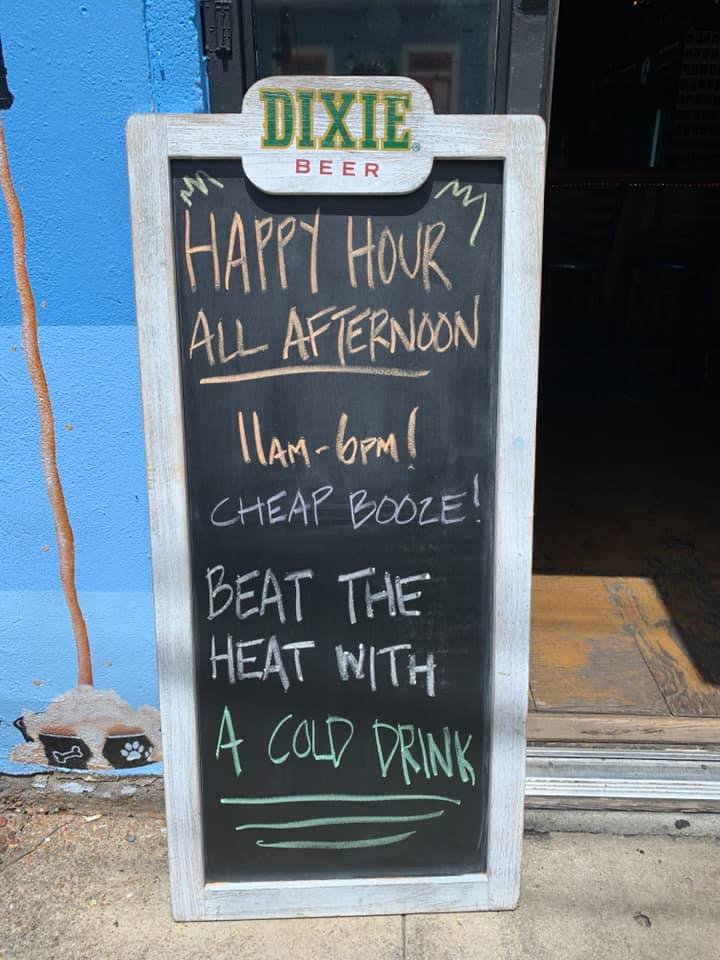 DIXIE
BEER
HAPPY HOUR
ALL AFTERNOON
11AM-6PM!
CHEAP BOOZE!
BEAT THE
HEAT WITH
A COLD DRINK